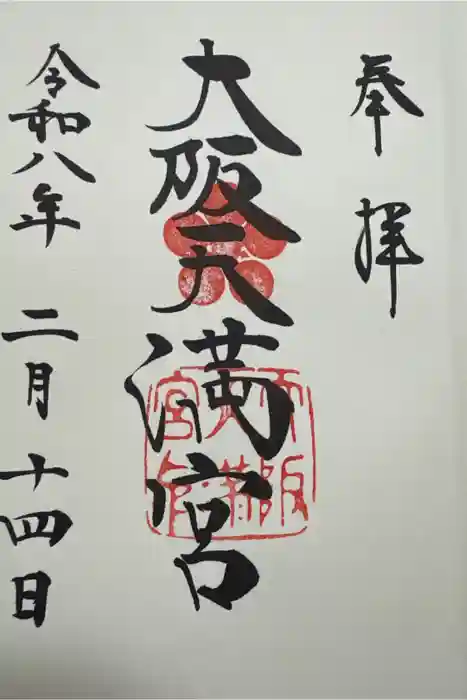 奉拝
大阪天満宮
令和八年 二月 十四日